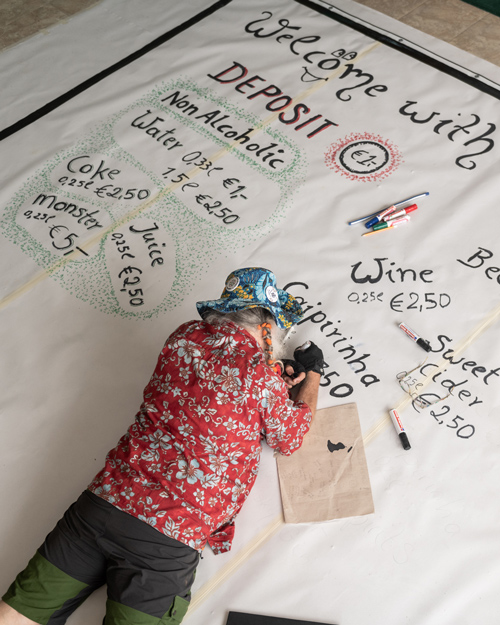 Welcome with
DEPOSIT
€1,-
Non Alcoholic
Water 0.33ℓ €1,-
1.5ℓ €2,50
Coke
0,25ℓ €2,50
Monster
0,25ℓ
€5,-
Juice
0,25ℓ
€2,50
Wine
0,25ℓ €2,50
Caipirinha
Sweet
Cider
0,25ℓ
€2,50